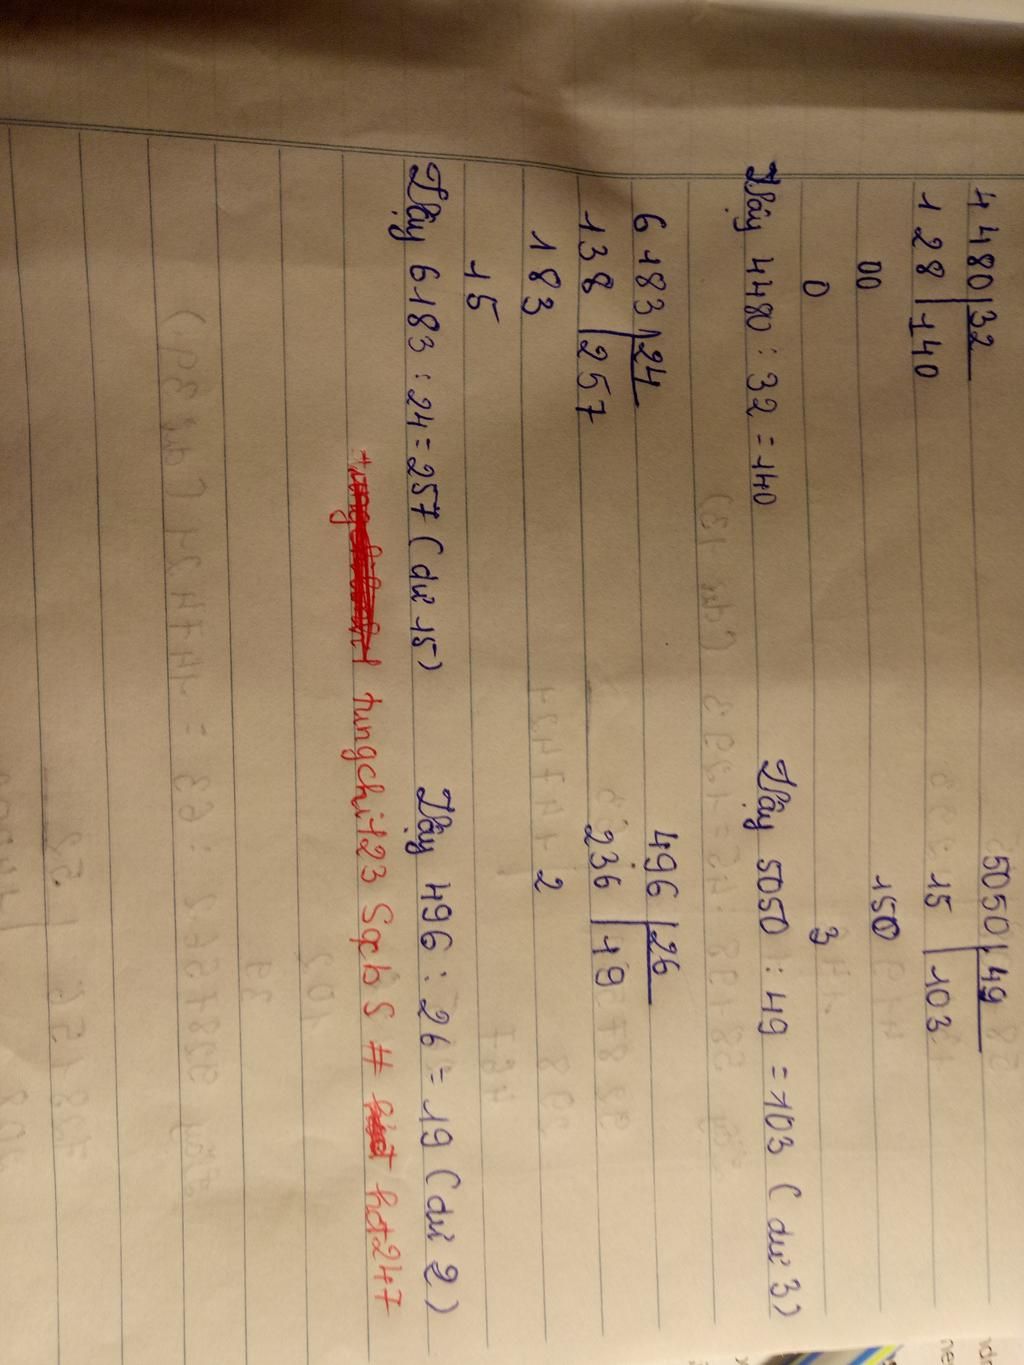 4480 32
128 140
00
0
Vậy 4480 : 32 = 140
5050 49
15 103
150
3
Vậy 5050 : 49 = 103 ( dư 3)
6183 24
138 257
183
15
Vậy 6183 : 24 = 257 ( dư 15)
496 26
236 19
2
Vậy 496 : 26 = 19 ( dư 2 )
# hot247